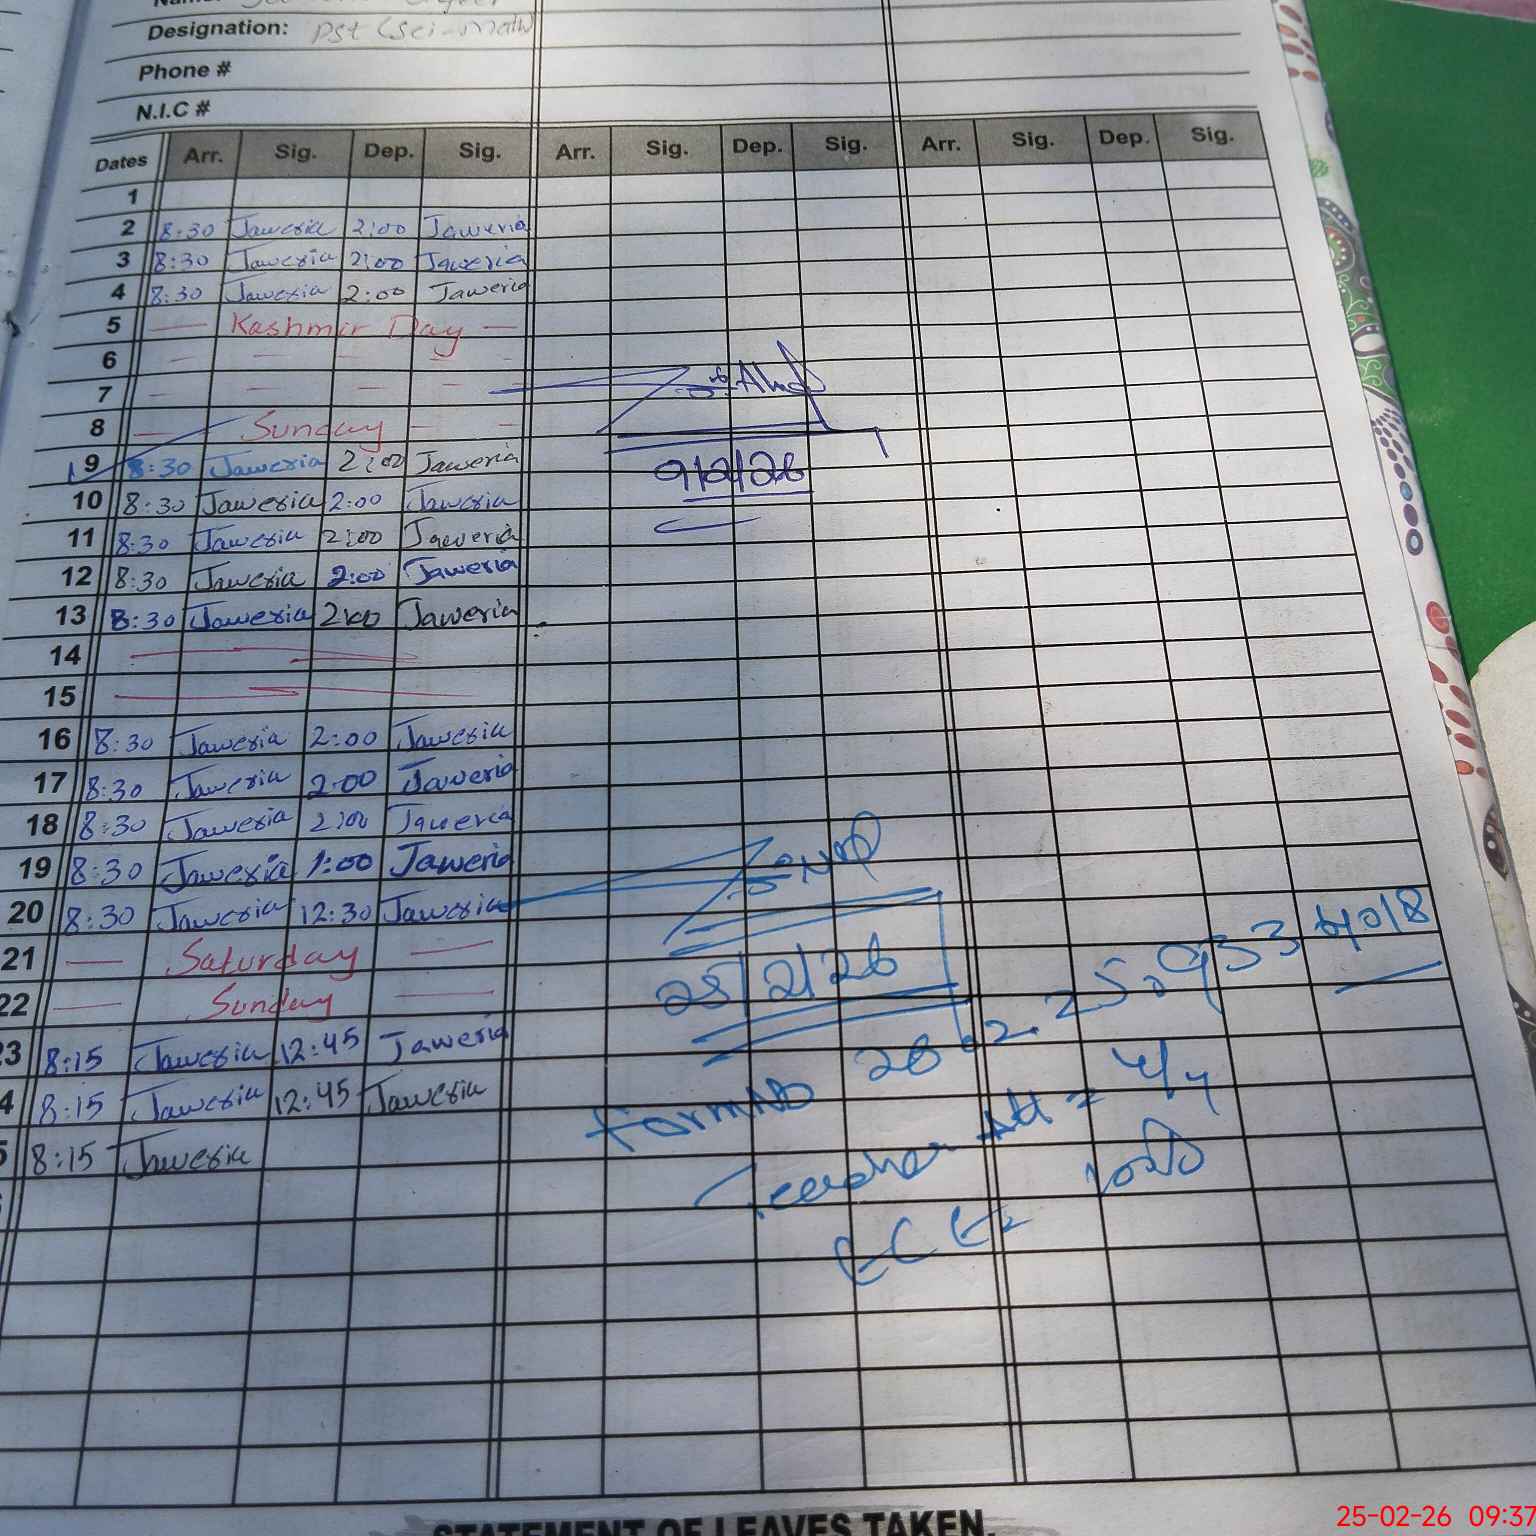 Designation: Pst (Sci-math)
Phone #
N.I.C #
Dates Arr. Sig. Dep. Sig. Arr. Sig. Dep. Sig. Arr. Sig. Dep. Sig.
1
2 8:30 Jaweria 2:00 Jaweria
3 8:30 Jaweria 2:00 Jaweria
4 8:30 Jaweria 2:00 Jaweria
5 Kashmir Day
6
7
8 Sunday
9 8:30 Jaweria 2:00 Jaweria
9/2/26
10 8:30 Jaweria 2:00 Jaweria
11 8:30 Jaweria 2:00 Jaweria
12 8:30 Jaweria 2:00 Jaweria
13 8:30 Jaweria 2:00 Jaweria
14
15
16 8:30 Jaweria 2:00 Jaweria
17 8:30 Jaweria 2:00 Jaweria
18 8:30 Jaweria 2:00 Jaweria
19 8:30 Jaweria 1:00 Jaweria
20 8:30 Jaweria 12:30 Jaweria
21 Saturday
22 Sunday
25/2/26
3 8:15 Jaweria 12:45 Jaweria
4 8:15 Jaweria 12:45 Jaweria
5 8:15 Jaweria
Teacher Att = 4/4
STATEMENT OF LEAVES TAKEN.
25-02-26 09:37